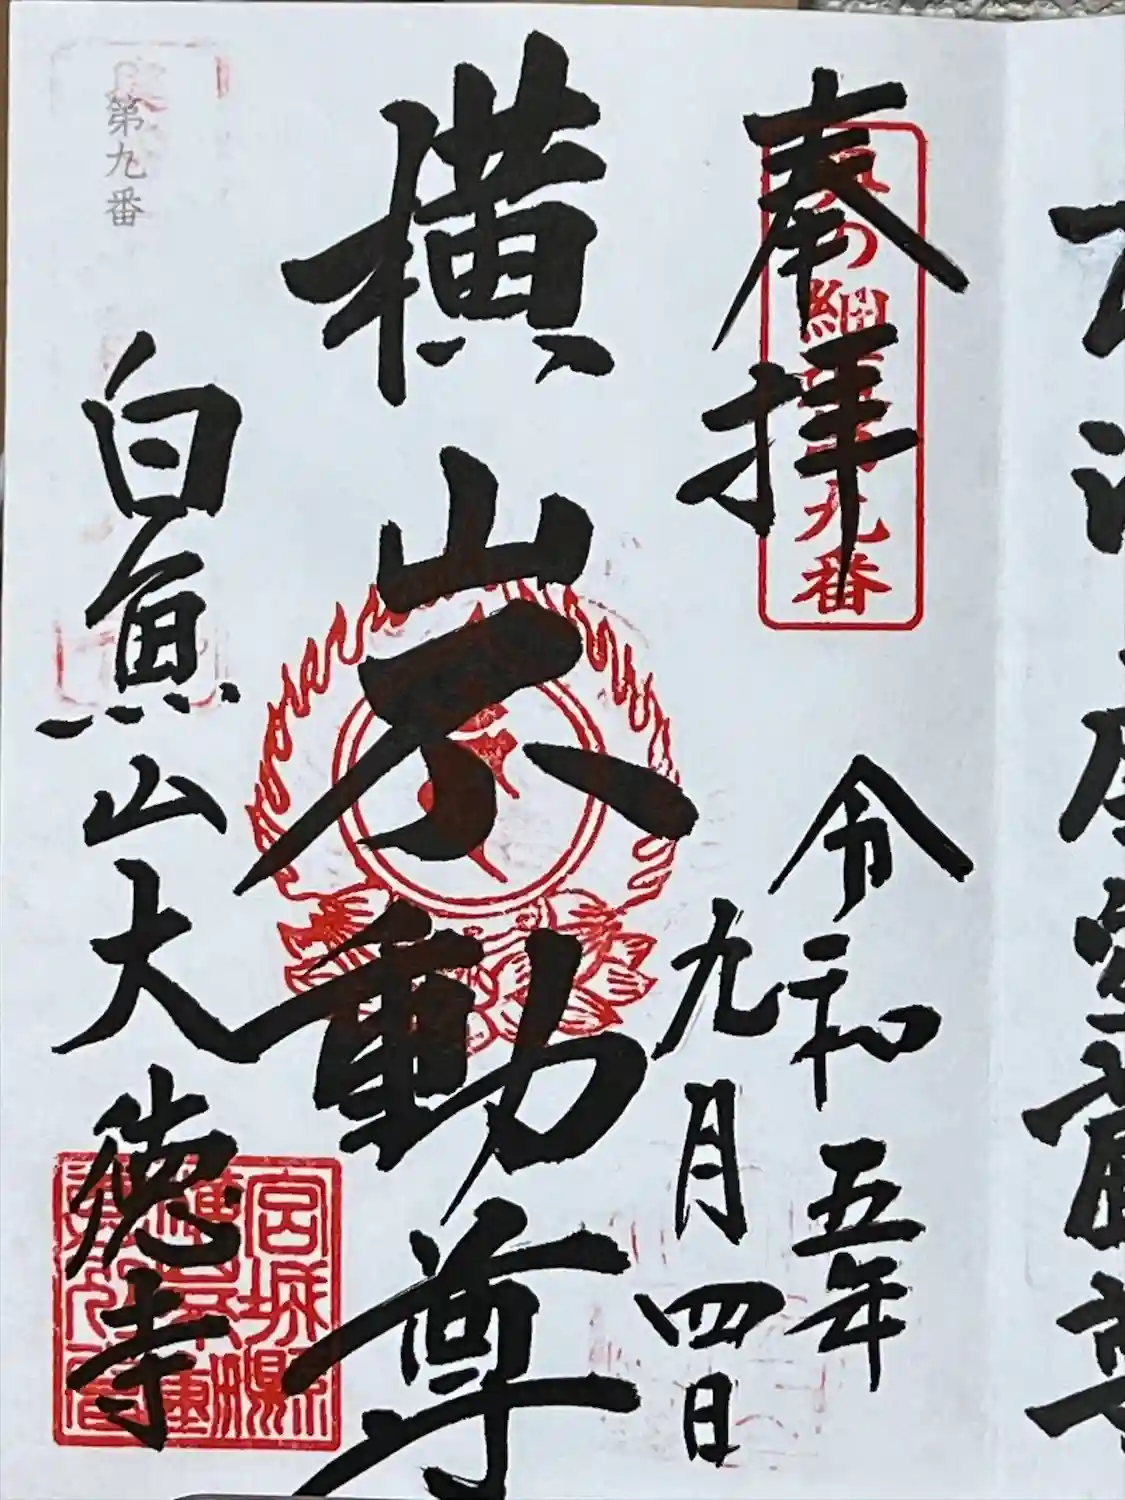 奉拝
九番
令和五年
九月四日
横山不動尊
第九番
白魚山大徳寺
宮城縣